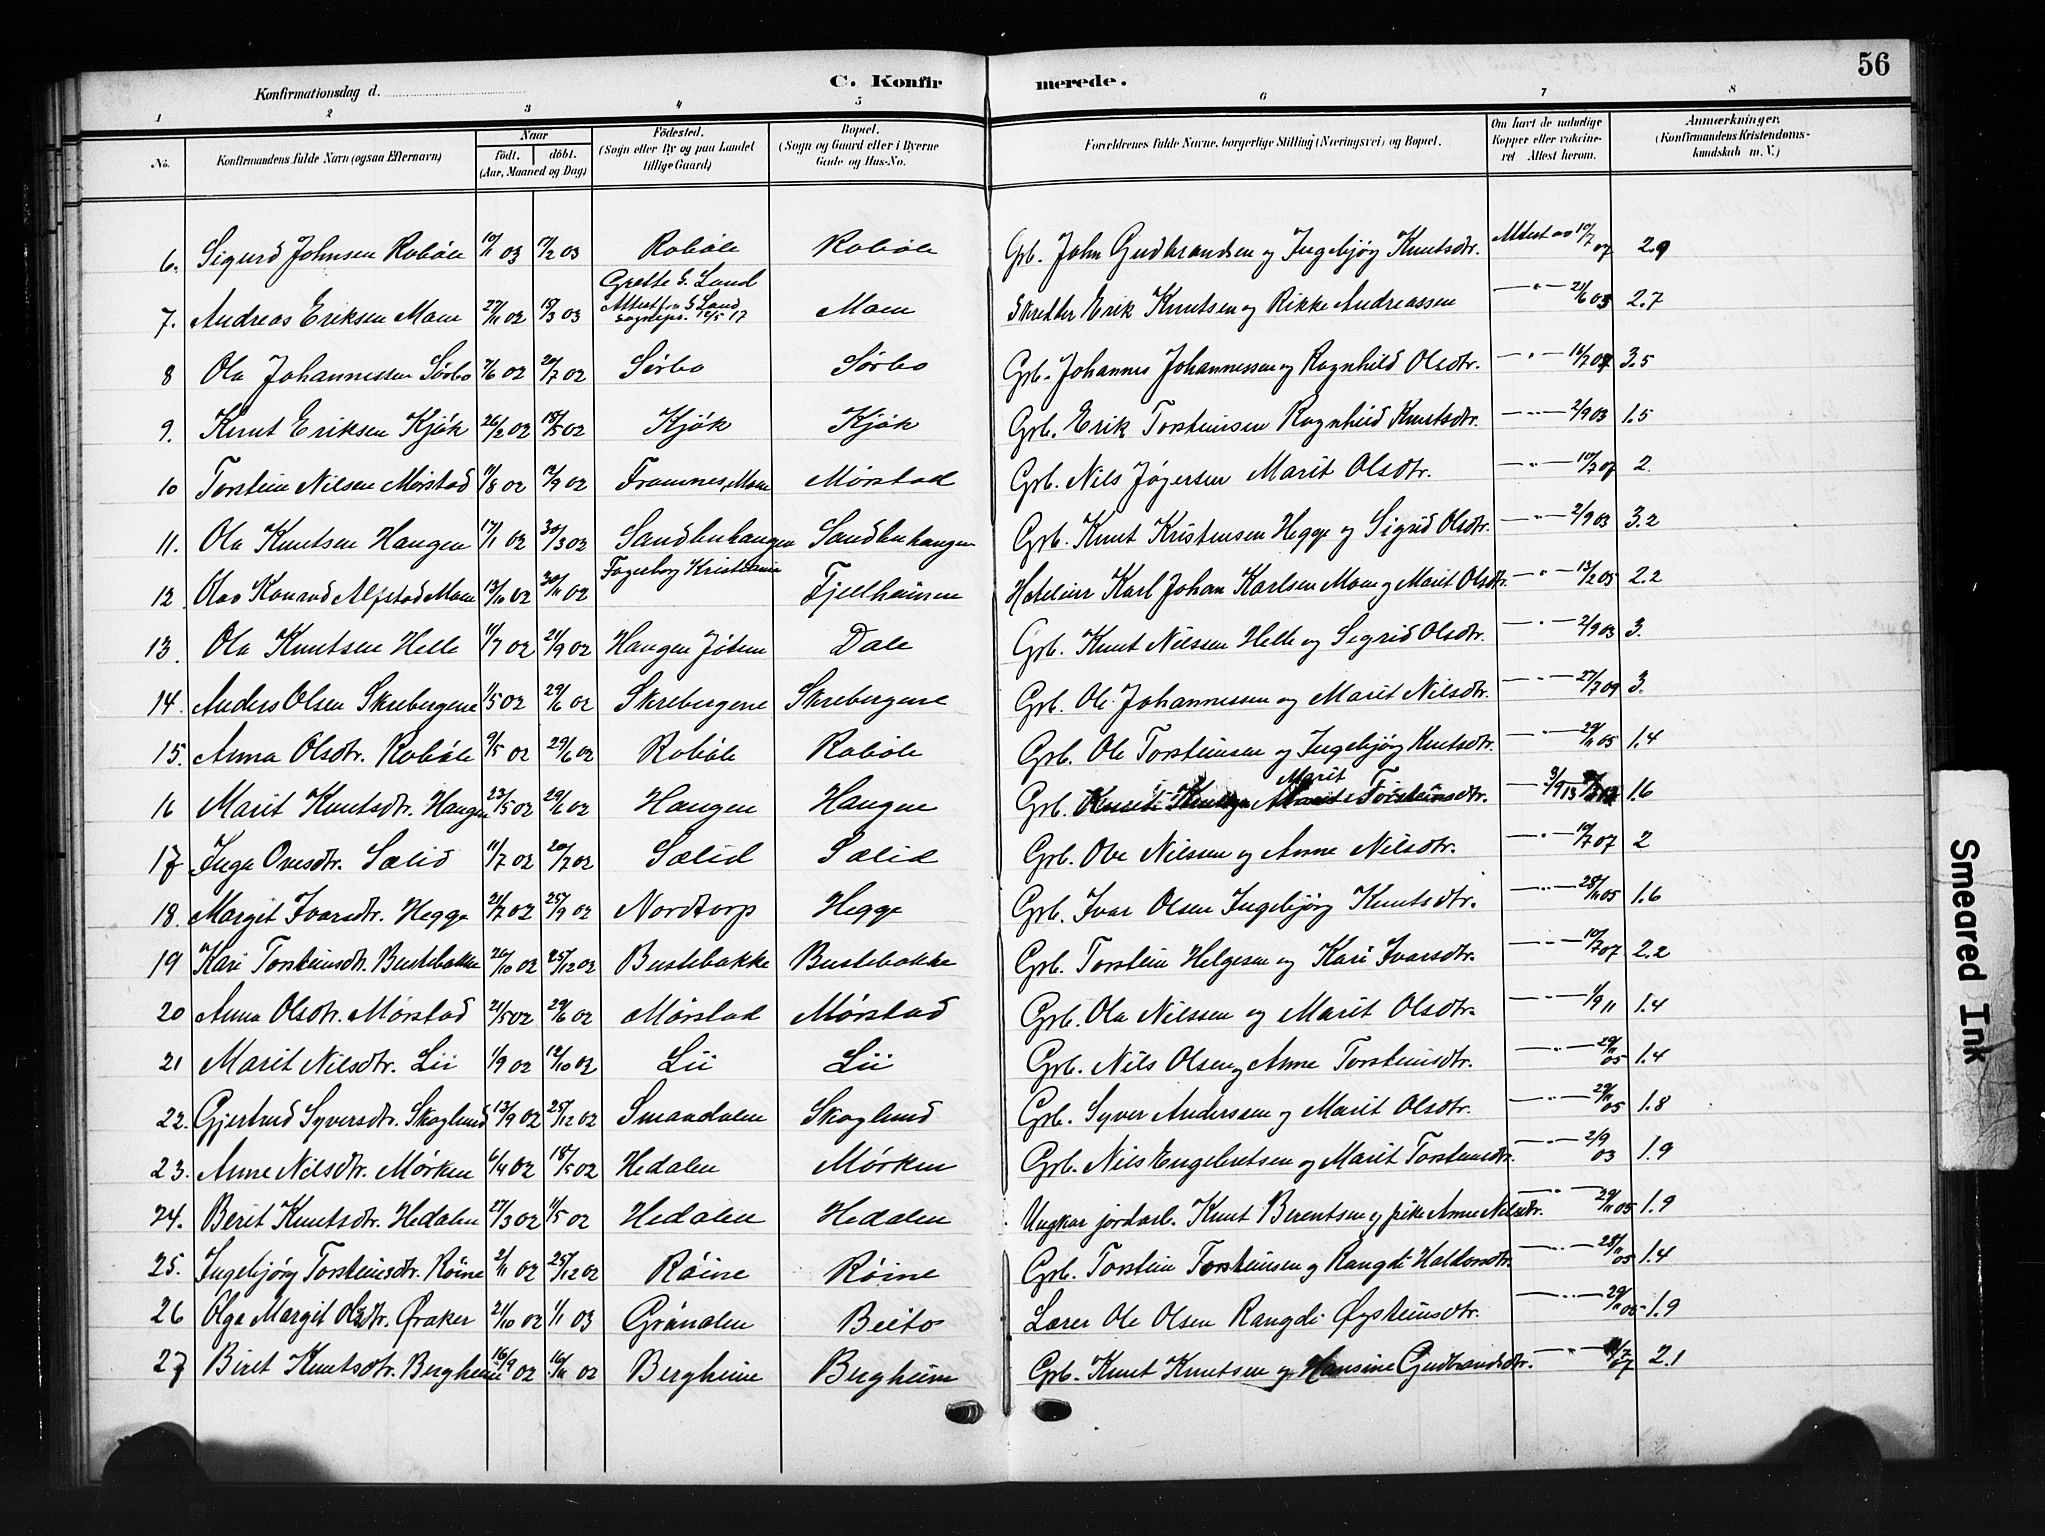 C. Konfirmerede.
56
Konfirmationsdag d.
1 2 3 4 5 6 7 8
No. Konfirmandens fulde Navn (ogsaa Efternavn) Naar født. døbt. (Aar, Maaned og Dag) Fødested. (Sogn eller By og paa Landet tillige Gaard) Bopæl. (Sogn og Gaard eller i Byerne Gade og Hus-No. Forældrenes fulde Navne, borgerlige Stilling (Næringsvei) og Bopæl. Om havt de naturlige Kopper eller vakcineret Attest herom. Anmærkninger. (Konfirmandens Kristendomskundskab m. V.)
6. Sigurd Johnsen Robøle 10/1 03 17/2 03 Robøle Robøle Grb. John Gudbrandsen og Ingebjøg Knutsdtr. Attest av 10/7 07 2.9
7. Andreas Eriksen Moen 27/11 02 15/3 03 Grette S. Land Attest fra S. Land sognepr. 12/5 17 Moen Skredder Erik Knutsen og Rikke Andreassen 21/6 03 2.7
8 Ola Johannessen Sørbo 7/6 02 20/7 02 Sørbo Sørbo Grb. Johannes Johannessen og Ragnhild Olsdtr. 3.5
9. Knut Eriksen Kjøk 26/2 02 18/5 02 Kjøk Kjøk Grb. Erik Torsteinsen Ragnhild Knutsdtr. 2/9 03 1.5
10 Torstein Nilsen Mørstad 11/8 02 Framnes, Moen Mørstad Grb. Nils Jøgersen Marit Olsdtr. 10/7 07 2.
11. Ola Knutsen Haugen 17/1 02 30/3 02 Sandbuhaugen Sandbuhaugen Grb. Knut Kristensen Hegge og Sigrid Olsdtr. 2/9 03 3.2
12. Olav Konrad Alfstad Moen 13/10 02 30/11 02 Fagerborg Kristiania Fjellheimen Hotelier Karl Johan Karlsen Moen og Marit Olsdtr. 13/2 05 2.2
13. Ola Knutsen Helle 11/7 02 21/9 02 Haugen Jøtun Dale Grb. Knut Nilssen Helle og Sigrid Olsdtr. 2/9 03 3.
14. Anders Olsen Skrebergene 1/5 02 29/6 02 Skrebergene Skrebergene Grb. Ole Johannessen og Marit Nilsdtr. 27/7 09 3.
15. Anna Olsdtr. Robøle 9/5 02 29/6 02 Robøle Robøle Grb. Ole Torsteinsen og Ingebjørg Knutsdtr. 29/11 05 1.4
16 Marit Knutsdtr. Haugen 23/5 02 29/6 02 Haugen Haugen Grb. Marit Torsteinsdtr. 3/9 13 1.6
17 Inga Ovesdtr. Sælid 11/7 02 20/7 02 Sælid Sælid Grb. Ove Nilsen og Anne Nilsdtr. 10/7 07 2
18. Margit Ivarsdtr. Hegge 21/7 02 25/9 02 Nordtorp Hegge Grb. Ivar Olsen Ingebjørg Knutsdtr. 28/11 05 1.6
19 Kari Torsteinsdtr. Bustebakke 26/10 02 25/12 02 Bustebakke Bustebakke Grb. Torstein Helgesen og Kari Ivarsdtr. 10/7 07 2.2
20 Anna Olsdtr. Mørstad 21/5 02 29/6 02 Mørstad Mørstad Grb. Ola Nilssen og Marit Olsdtr. 1/9 11 1.4
21 Marit Nilsdtr. Lii 1/9 02 12/10 02 Lii Lii Grb. Nils Olsen og Anne Torsteinsdtr. 29/11 05 1.4
22. Gjertrud Syversdtr. Skoglund 13/9 02 25/12 02 Smaadalen Skoglund Grb. Syver Anderssen og Marit Olsdtr. 29/11 05 1.8
23. Anne Nilsdtr. Mørken 6/4 02 18/5 02 Hedalen Mørken Grb. Nils Engebretsen og Marit Torsteinsdtr. 2/9 03 1.9
24. Berit Knutsdtr. Hedalen 27/3 02 11/5 02 Hedalen Hedalen Ungkar jordarb. Knut Berentsen og pike Anne Nilsdtr. 29/11 05 1.9
25. Ingebjørg Torsteinsdtr. Røine 2/11 02 25/12 02 Røine Røine Grb. Torstein Torsteinsen og Rangdi Haldorsdtr. 28/11 05 1.4
26 Olga Margit Olsdtr. Øraker 21/10 02 1/1 03 Grønolen Beito Lærer Ole Olsen Rangdi Øysteinsdtr. 29/11 05 1.9
27 Biret Knutsdtr. Bergheim 16/9 02 16/11 02 Bergheim Bergheim Grb. Knut Knutsen og Hansine Gudbrandsdtr. 2.1
Smeared Ink